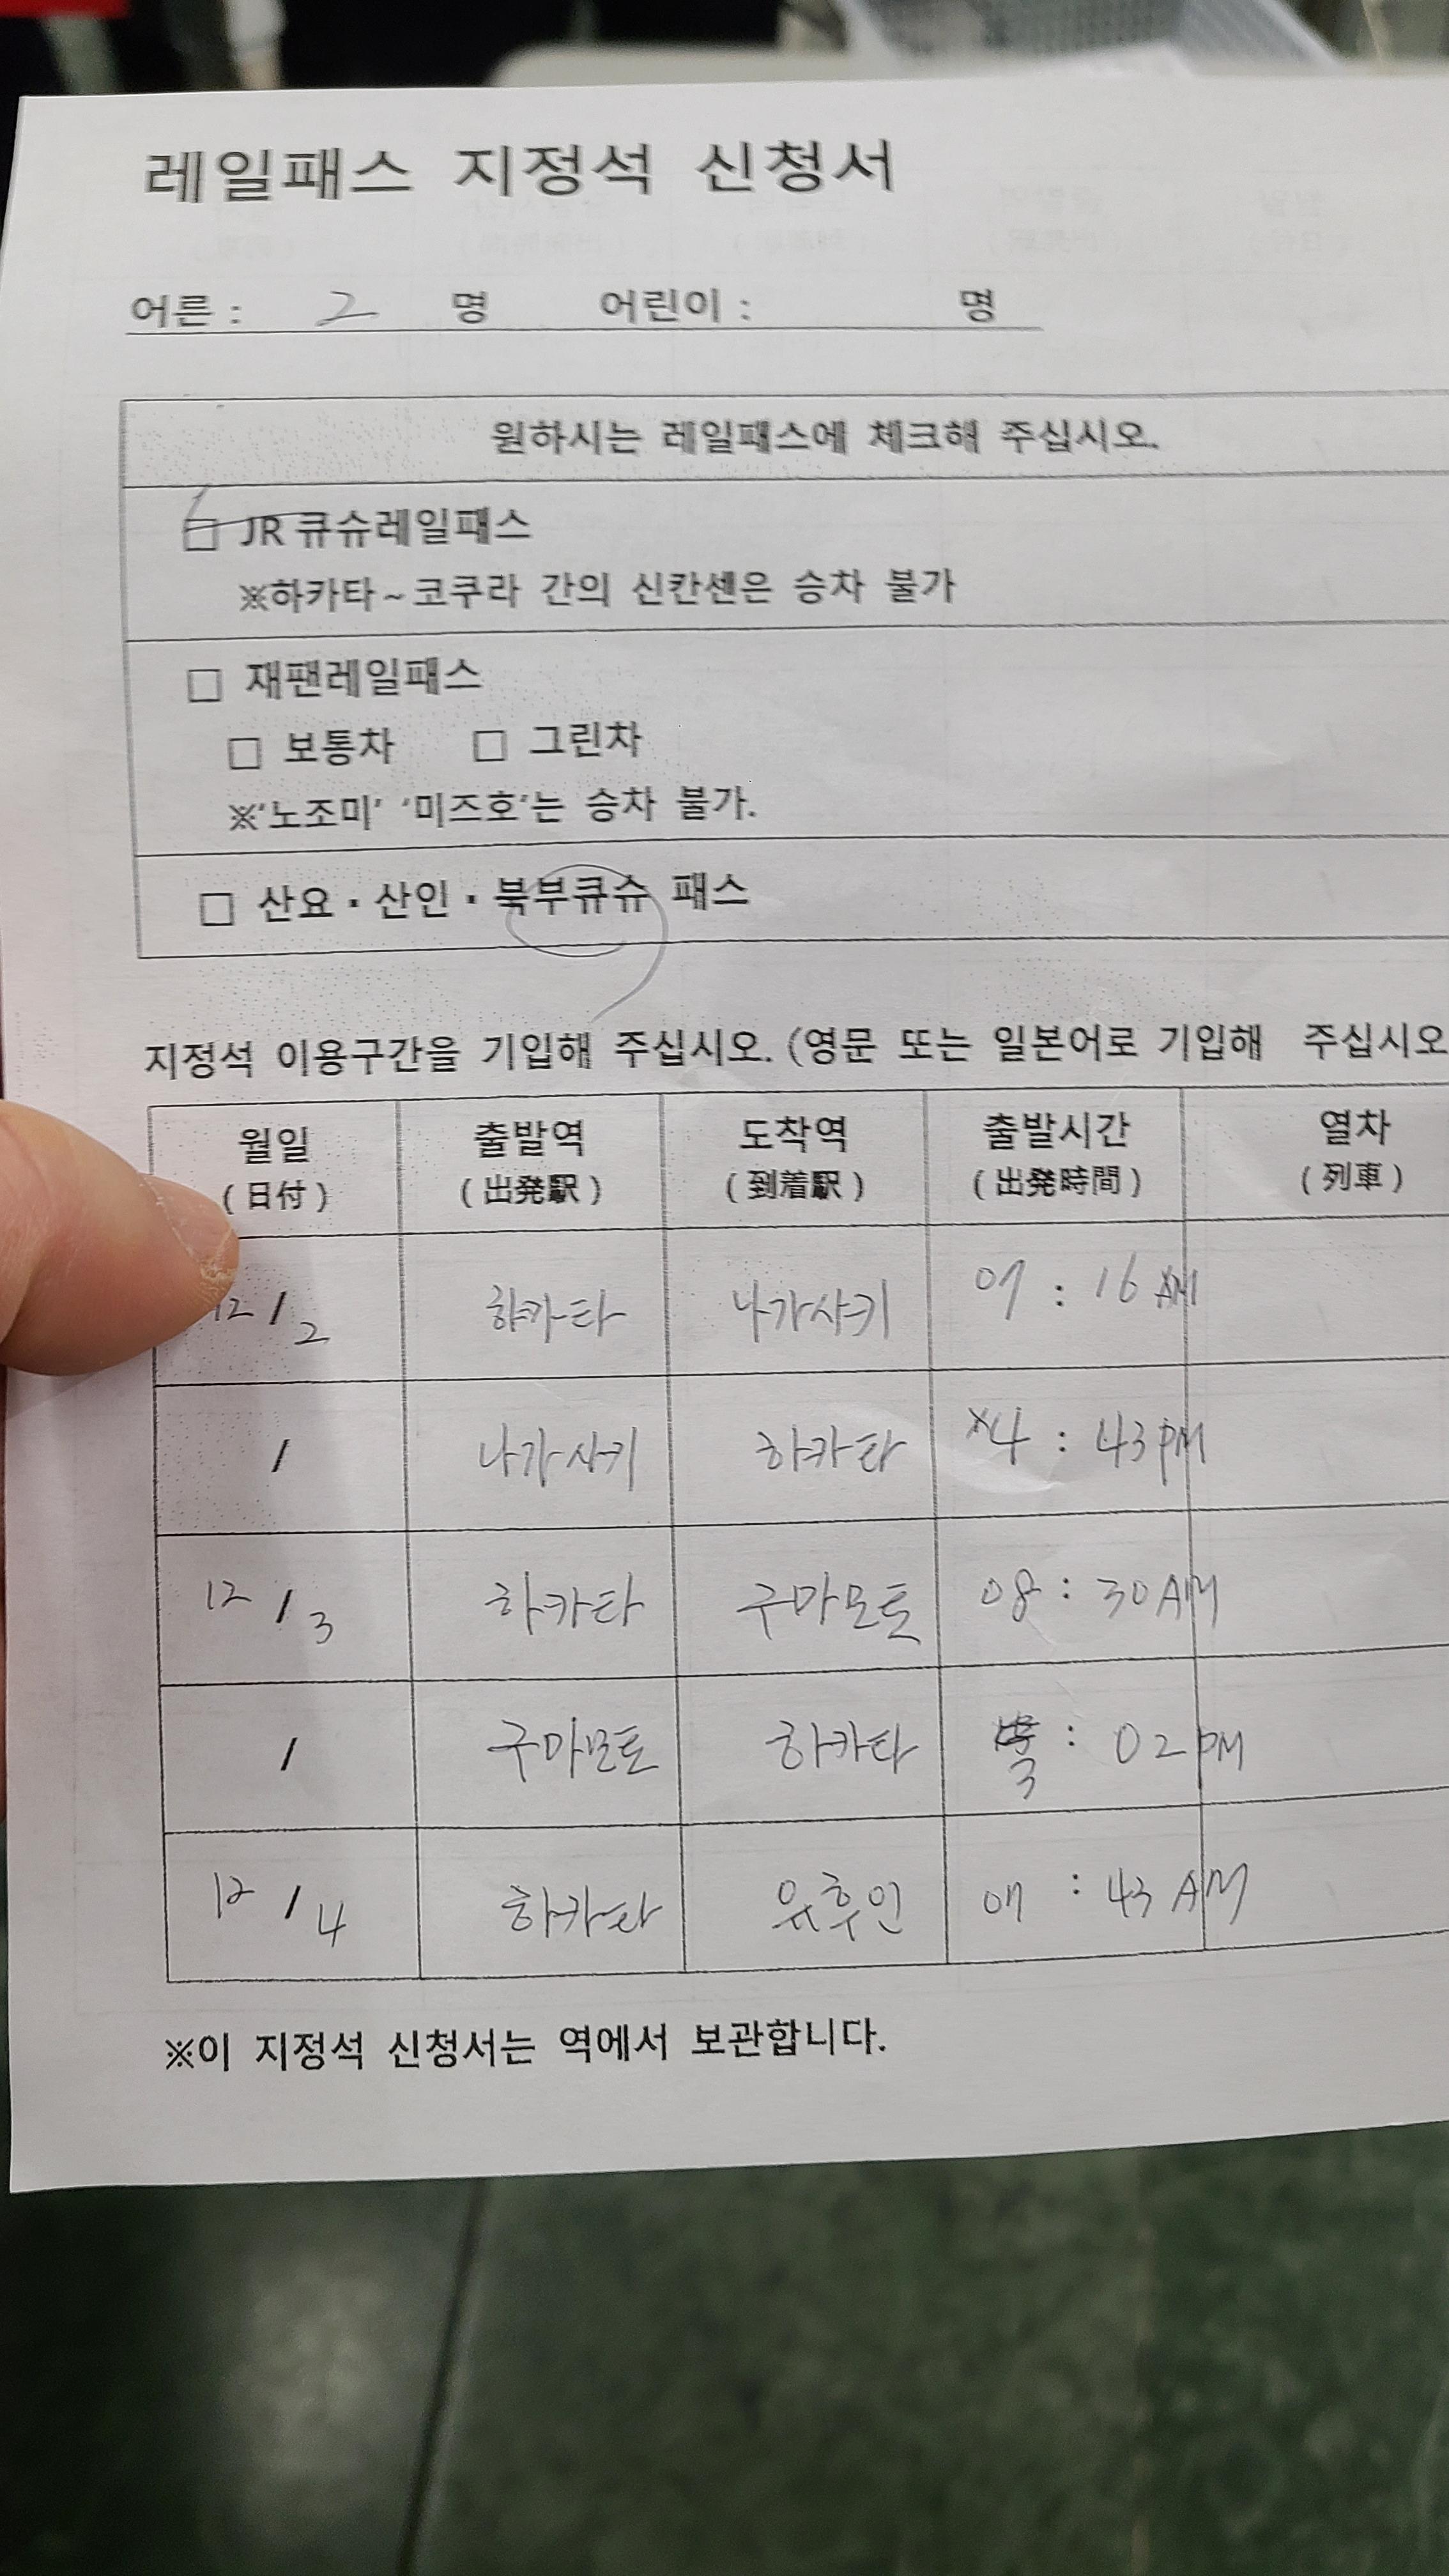 레일패스 지정석 신청서
어른 : 2 명 어린이 : 명
원하시는 레일패스에 체크해 주십시오.
□ JR 큐슈레일패스
※하카타~코쿠라 간의 신칸센은 승차 불가
□ 재팬레일패스
□ 보통차 □ 그린차
※'노조미' '미즈호'는 승차 불가.
□ 산요·산인·북부큐슈 패스
지정석 이용구간을 기입해 주십시오. (영문 또는 일본어로 기입해 주십시오
월일 출발역 도착역 출발시간 열차
(日付) (出発駅) (到着駅) (出発時間) (列車)
12/2 하카타 나가사키 07 : 16 AM
/ 나가사키 하카타 4 : 43 PM
12/3 하카타 구마모토 08 : 30 AM
/ 구마모토 하카타 3 : 02 PM
12/4 하카타 유후인 07 : 43 AM
※이 지정석 신청서는 역에서 보관합니다.